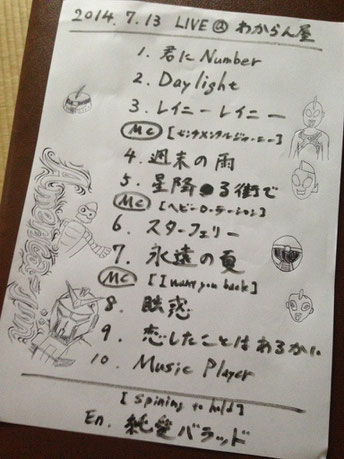 2014.7.13 LIVE @ わからん屋
1. 君に Number
2. Daylight
3. レイニーレイニー
MC [センチメンタルジャーニー]
4. 週末の雨
5. 星降る街で
MC [ヘビーローテーション]
6. スターフェリー
7. 永遠の夏
MC [I want you back]
8. 眩惑
9. 恋したことはあるかい
10. Music Player
[Spining to hold]
En. 純愛バラッド